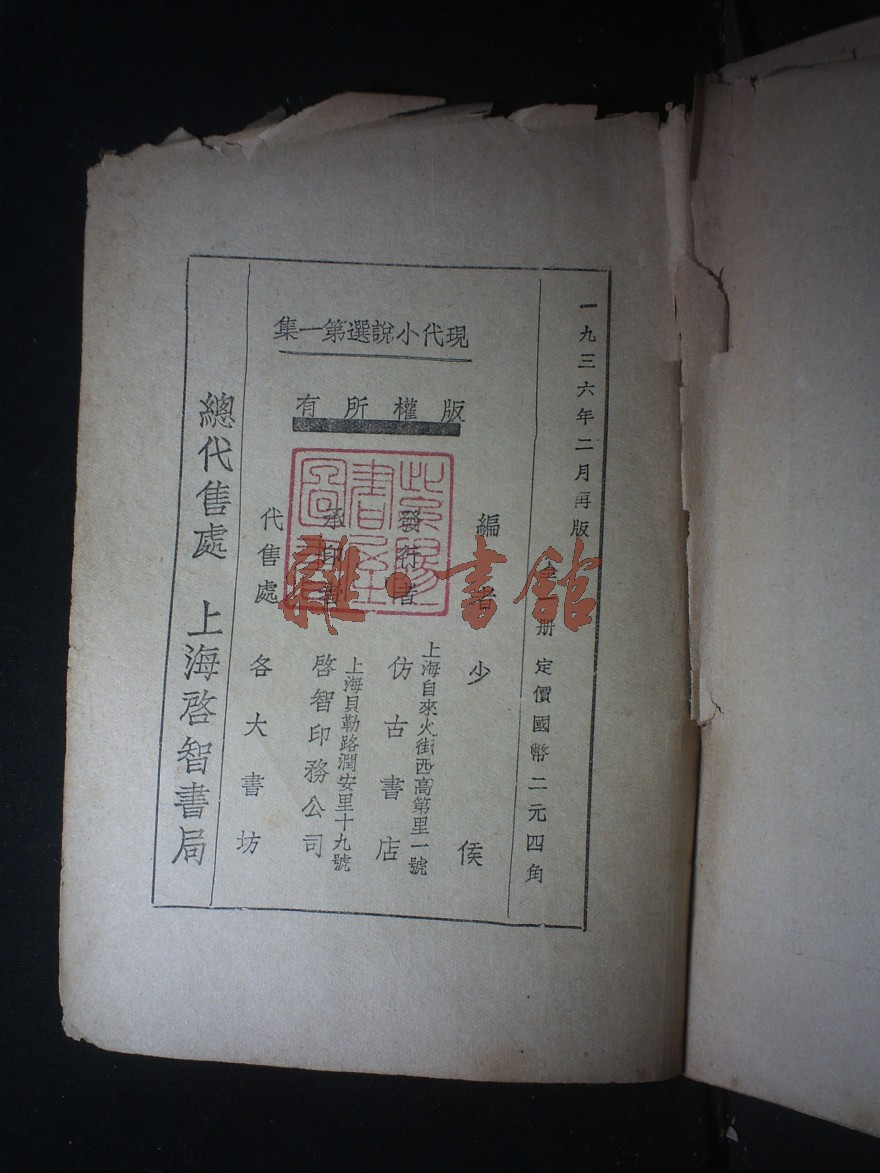 一九三六年二月再版 全 冊 定價國幣二元四角
現代小說選第一集
版權所有
編者 少侯
發行者 仿古書店
上海自來火街西高第里一號
承印者 啓智印務公司
上海貝勒路潤安里十九號
代售處 各大書坊
總代售處 上海啓智書局
雜·書館